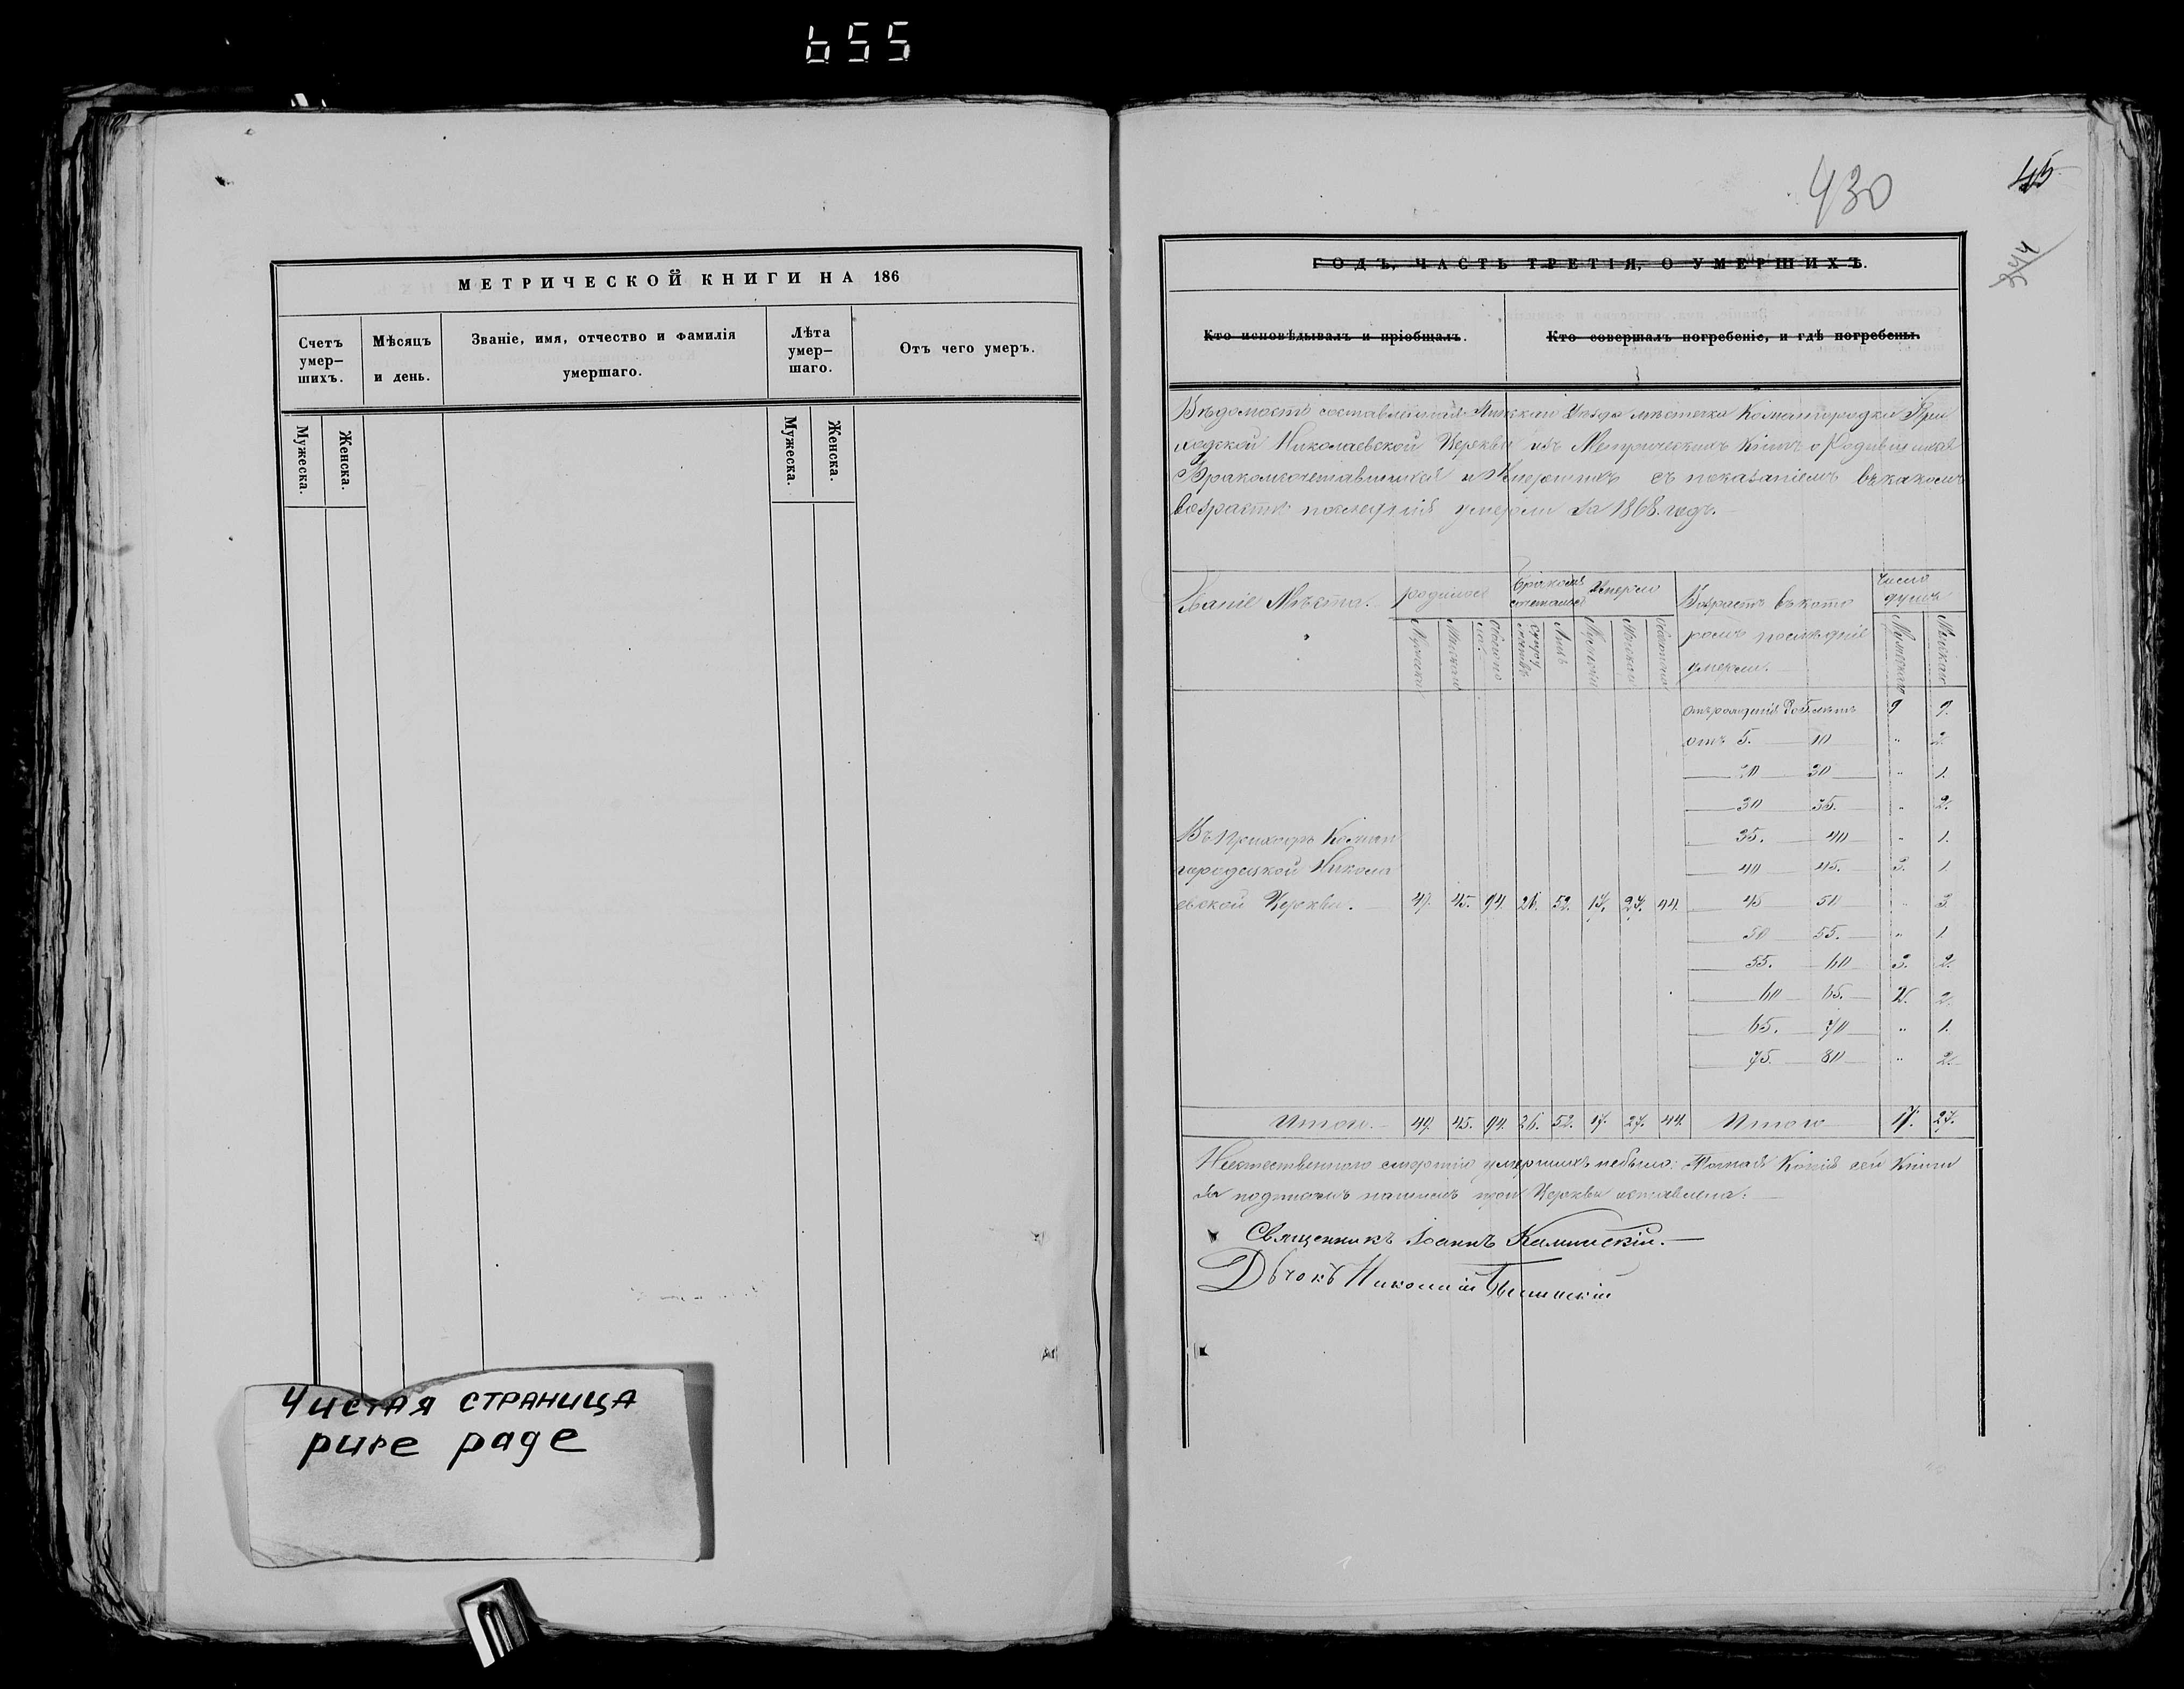 655
МЕТРИЧЕСКОЙ КНИГИ НА 186
Счетъ умер— шихъ.
Мѣсяцъ и день.
Званіе, имя, отчество и фамилія умершаго.
Лѣта умер— шаго.
Отъ чего умеръ.
Мужеска.
Женска.
Мужеска.
Женска.
Чистая страница
pure page
430
45
344
ГОДЪ, ЧАСТЬ ТРЕТІЯ, О УМЕРШИХЪ.
Кто исповѣдывалъ и пріобщалъ.
Кто совершалъ погребеніе, и гдѣ погребены.
Вѣдомость составленная Пинскаго Уѣзда мѣстечка Кожангородка При
ходской Николаевской Церкви изъ Метрическихъ Книгъ о Родившихся
Бракомсочетавшихся и Умершихъ съ показаніемъ въ какомъ
возрастѣ послѣдніе умерли за 1868. годъ.
Званіе Мѣста.
родилось
Бракомъ сочеталось
Умерло
Возрастъ въ кото
ромъ послѣдніе
умерли.
Число душъ
Мужеска
Женскаго
Обоего
Лицъ
Женскаго
Мужескаго
Женскаго
отъ рожденія до 5. лѣтъ 9 9.
отъ 5. — 10 — " 2.
30 " 1.
30 35. " 2.
35. 40 " 1.
40 45. 3. 1
45 50 " 3
50 55. " 1.
55. 60 3. 2.
60 65. 2. 2.
65. 70 " 1.
75. 80 " 2.
Въ Приходѣ Кожан
городецкой Никола
евской Церкви. 49. 45. 94. 26. 52. 17. 27. 44.
Итого. 49. 45. 94. 26. 52. 17. 27. 44. Итого 17. 27.
Неестественною смертію умершихъ небыло: Точная Копія сей Книги
за подписомъ нашимъ при Церкви оставлена.
Священникъ Іоаннъ Калинскій.
Дьчокъ Николай